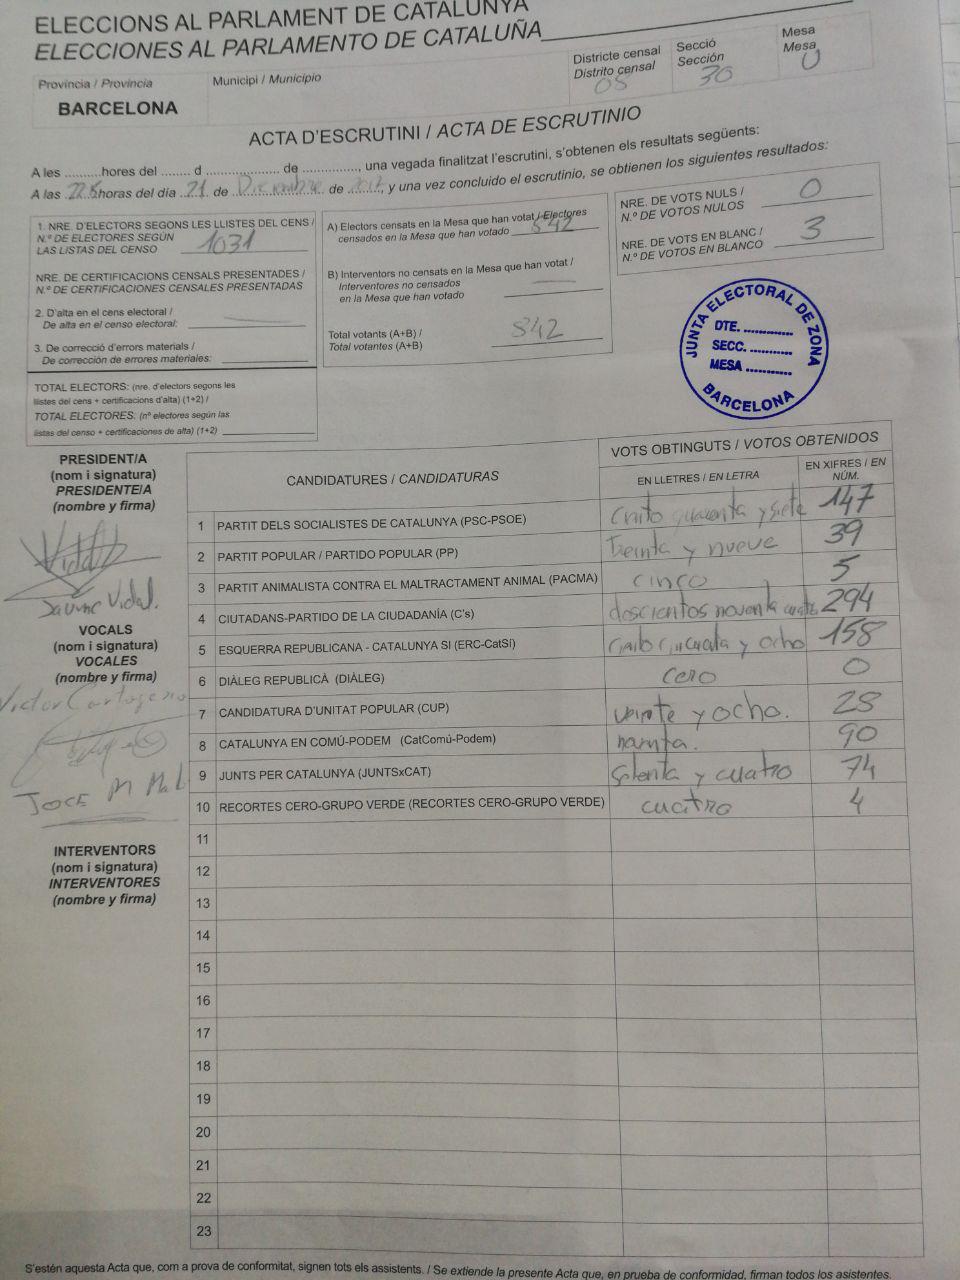 ELECCIONS AL PARLAMENT DE CATALUNYA
ELECCIONES AL PARLAMENTO DE CATALUÑA
Província / Provincia
BARCELONA
Municipi / Municipio
Districte censal
Distrito censal
08
Secció
Sección
30
Mesa
Mesa
U
ACTA D'ESCRUTINI / ACTA DE ESCRUTINIO
A les ..........hores del ........ d .................... de ..............., una vegada finalitzat l'escrutini, s'obtenen els resultats següents:
A las horas del día 21 de Diciembre de 2017, y una vez concluido el escrutinio, se obtienen los siguientes resultados:
1. NRE. D'ELECTORS SEGONS LES LLISTES DEL CENS /
N.º DE ELECTORES SEGÚN
LAS LISTAS DEL CENSO 1031
NRE. DE CERTIFICACIONS CENSALS PRESENTADES /
N.º DE CERTIFICACIONES CENSALES PRESENTADAS
2. D'alta en el cens electoral /
De alta en el censo electoral:
3. De correcció d'errors materials /
De corrección de errores materiales:
TOTAL ELECTORS: (nre. d'electors segons les
llistes del cens + certificacions d'alta) (1+2) /
TOTAL ELECTORES: (nº electores según las
listas del censo + certificaciones de alta) (1+2)
A) Electors censats en la Mesa que han votat / Electores
censados en la Mesa que han votado 842
B) Interventors no censats en la Mesa que han votat /
Interventores no censados
en la Mesa que han votado
Total votants (A+B) /
Total votantes (A+B) 842
NRE. DE VOTS NULS /
N.º DE VOTOS NULOS 0
NRE. DE VOTS EN BLANC /
N.º DE VOTOS EN BLANCO 3
JUNTA ELECTORAL DE ZONA
DTE. ..............
SECC. ............
MESA .............
BARCELONA
PRESIDENT/A
(nom i signatura)
PRESIDENTE/A
(nombre y firma)
Jaume Vidal.
VOCALS
(nom i signatura)
VOCALES
(nombre y firma)
Victor Cartagena
JOSE M
INTERVENTORS
(nom i signatura)
INTERVENTORES
(nombre y firma)
CANDIDATURES / CANDIDATURAS
VOTS OBTINGUTS / VOTOS OBTENIDOS
EN LLETRES / EN LETRA
EN XIFRES / EN
NÚM.
1 PARTIT DELS SOCIALISTES DE CATALUNYA (PSC-PSOE) Ciento cuarenta y siete 147
2 PARTIT POPULAR / PARTIDO POPULAR (PP) treinta y nueve 39
3 PARTIT ANIMALISTA CONTRA EL MALTRACTAMENT ANIMAL (PACMA) cinco 5
4 CIUTADANS-PARTIDO DE LA CIUDADANÍA (C's) doscientos noventa cuatro 294
5 ESQUERRA REPUBLICANA - CATALUNYA SI (ERC-CatSí) Ciento cincuenta y ocho 158
6 DIÀLEG REPUBLICÀ (DIÀLEG) cero 0
7 CANDIDATURA D'UNITAT POPULAR (CUP) veinte y ocho. 28
8 CATALUNYA EN COMÚ-PODEM (CatComú-Podem) noventa. 90
9 JUNTS PER CATALUNYA (JUNTSxCAT) Setenta y cuatro 74
10 RECORTES CERO-GRUPO VERDE (RECORTES CERO-GRUPO VERDE) cuatro 4
11
12
13
14
15
16
17
18
19
20
21
22
23
S'estén aquesta Acta que, com a prova de conformitat, signen tots els assistents. / Se extiende la presente Acta que, en prueba de conformidad, firman todos los asistentes.